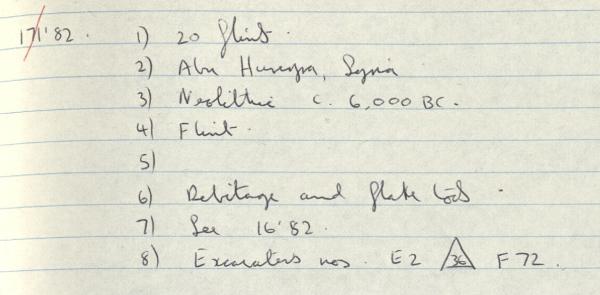 171'82. 1) 20 flint.
2) Abu Hureyra, Syria
3) Neolithic c. 6,000 BC.
4) Flint.
5)
6) Debitage and flake tools.
7) See 16'82.
8) Excavators nos. E2 36 F72.